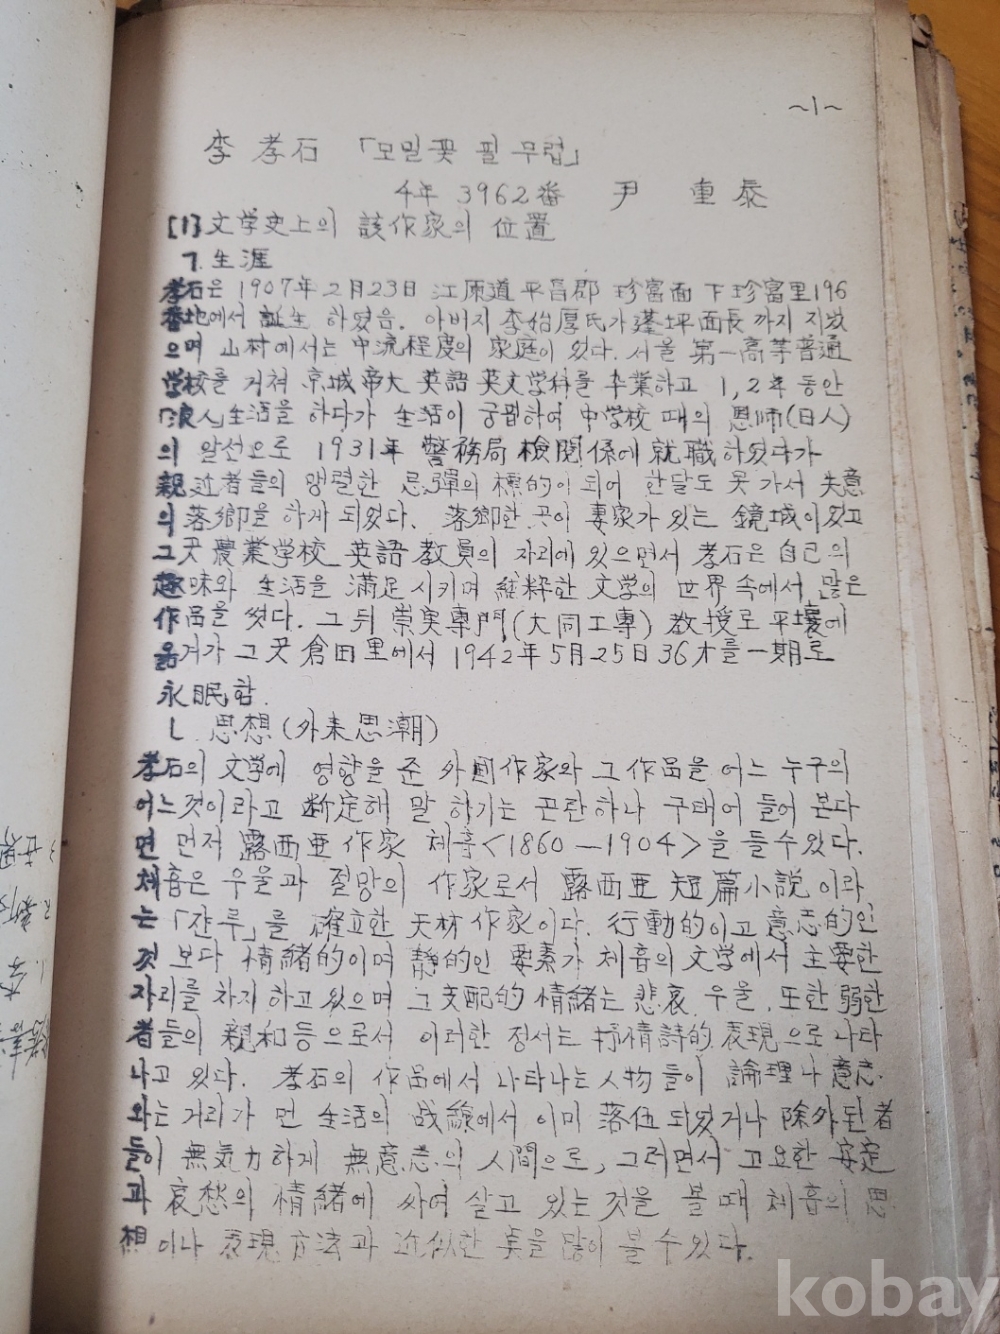 ~1~
李孝石 「모밀꽃 필 무렵」
4年 3962番 尹 重泰
[1] 文学史上의 該作家의 位置
ㄱ. 生涯
孝石은 1907年 2月 23日 江原道 平昌郡 珍富面 下珍富里 196
番地에서 誕生 하였음. 아버지 李始厚氏가 蓬坪面長까지 지냈
으며 山村에서는 中流程度의 家庭이 었다. 서울 第一高等普通
学校를 거쳐 京城帝大 英語英文学科를 卒業하고 1,2年 동안
「浪人」生活을 하다가 生活이 궁핍하여 中学校 때의 恩師(日人)
의 알선으로 1931年 警務局 檢閱係에 就職하였다가
親近者들의 맹렬한 忌彈의 標的이 되어 한달도 못 가서 失意
의 落鄕을 하게 되었다. 落鄕한 곳이 妻家가 있는 鏡城이었고
그곳 農業学校 英語教員의 자리에 있으면서 孝石은 自己의
趣味와 生活을 滿足시키며 純粹한 文学의 世界 속에서 많은
作品을 썼다. 그 뒤 崇実專門(大同工專) 教授로 平壤에
옮겨가 그곳 倉田里에서 1942年 5月 25日 36才를 一期로
永眠함.
ㄴ. 思想 (外来思潮)
孝石의 文学에 영향을 준 外囯作家와 그 作品을 어느 누구의
어느것이라고 断定해 말 하기는 곤란하나 구태어 들어 본다
면 먼저 露西亜 作家 체홉 <1860—1904>을 들수있다.
체홉은 우울과 절망의 作家로서 露西亜 短篇小説 이라
는 「쟌루」를 確立한 天材作家이다. 行動的이고 意志的인
것 보다 情緒的이며 靜的인 要素가 체홉의 文学에서 主要한
자리를 차지하고 있으며 그 支配的 情緒는 悲哀, 우울, 또한 弱한
者들의 親和등으로서 이러한 정서는 抒情詩的 表現으로 나타
나고 있다. 孝石의 作品에서 나타나는 人物들이 論理나 意志
와는 거리가 먼 生活의 战線에서 이미 落伍되었거나 除外된 者
들이 無気力하게 無意志의 人間으로, 그러면서 고요한 安定
과 哀愁의 情緒에 싸여 살고 있는 것을 볼 때 체홉의 思
想이나 表現方法과 近似한 点을 많이 볼 수 있다.
kobay